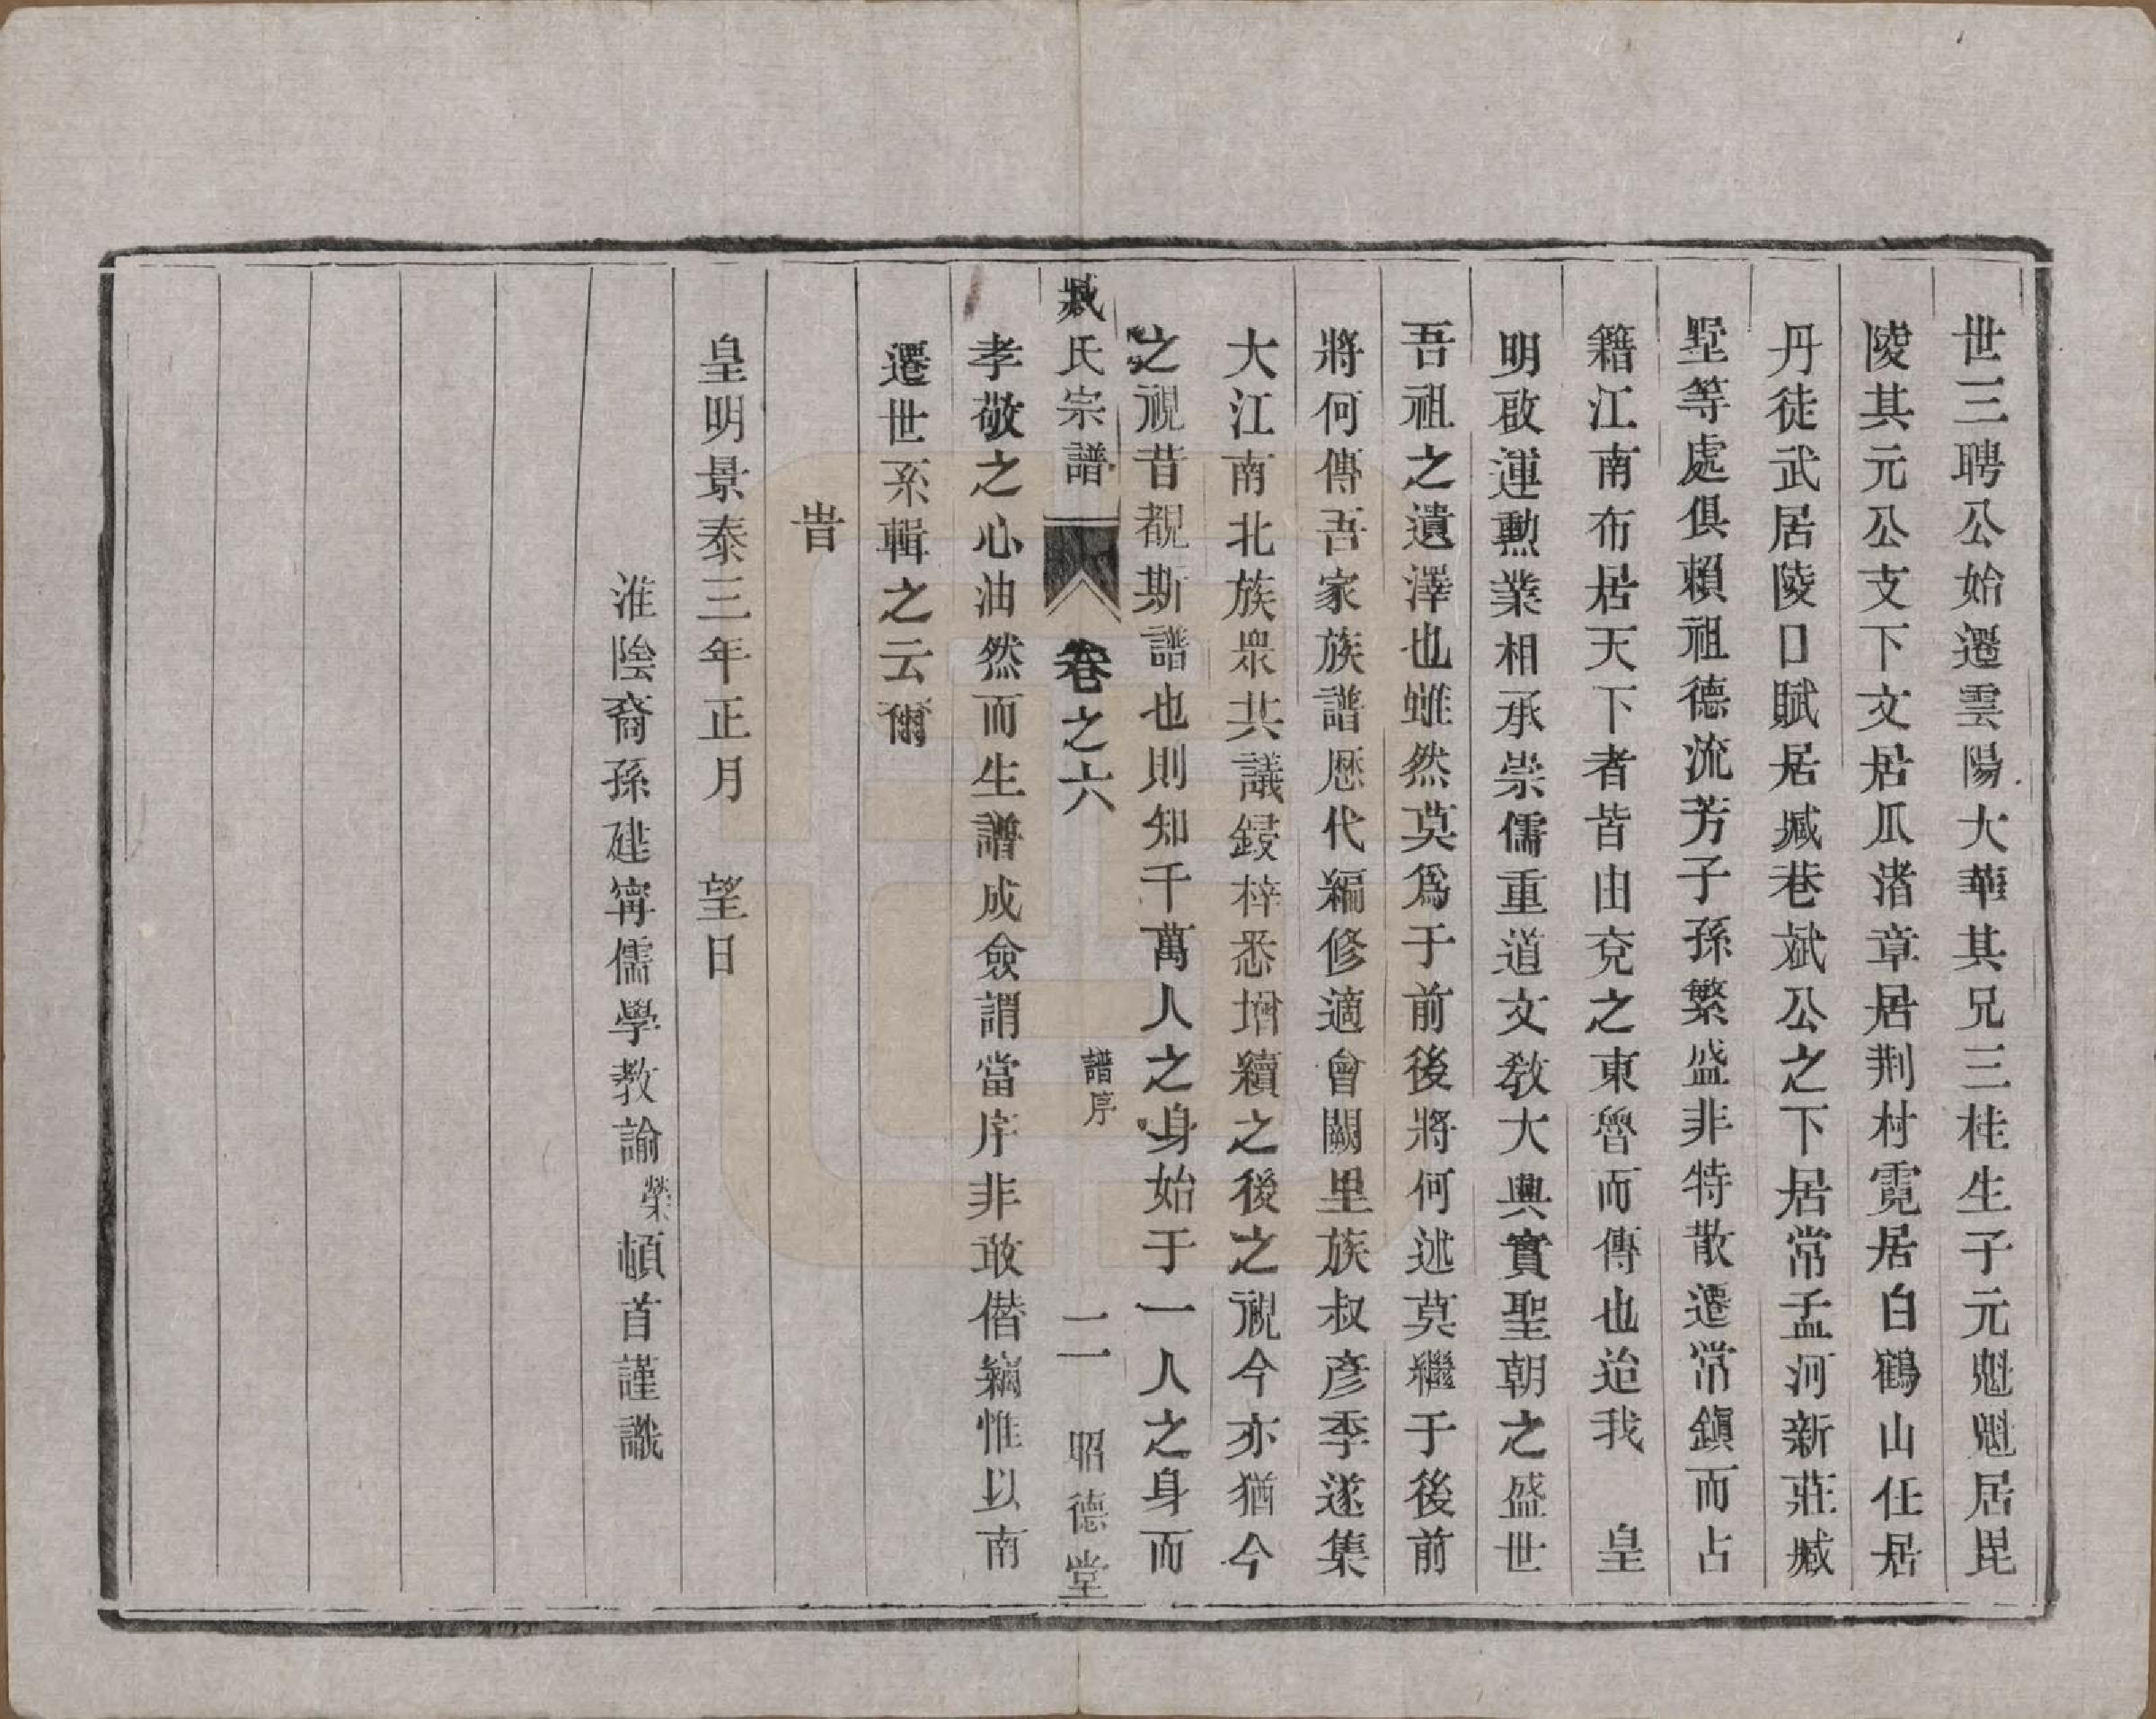 世三聘公始遷雲陽大華其兄三桂生子元魁魁居毘
陵其元公支下文居瓜渚章居荆村霓居白鶴山任居
丹徒武居陵口賦居臧巷斌公之下居常孟河新莊臧
墅等處俱賴祖德流芳子孫繁盛非特散遷常鎭而占
籍江南布居天下者皆由兗之東魯而傳也迨我　皇
明啟運勲業相承崇儒重道文教大興實聖朝之盛世
吾祖之遺澤也雖然莫爲于前後將何述莫繼于後前
將何傳吾家族譜歷代編修適會闕里族叔彦季遂集
大江南北族衆共議鋟梓悉增續之後之視今亦猶今
之視昔覩斯譜也則知千萬人之身始于一人之身而
臧氏宗譜　卷之六　譜序　二　昭德堂
孝敬之心油然而生譜成僉謂當序非敢僭編惟以南
遷世系輯之云爾
旹
皇明景泰三年正月　望日
淮陰裔孫建寗儒學教諭榮頓首謹識